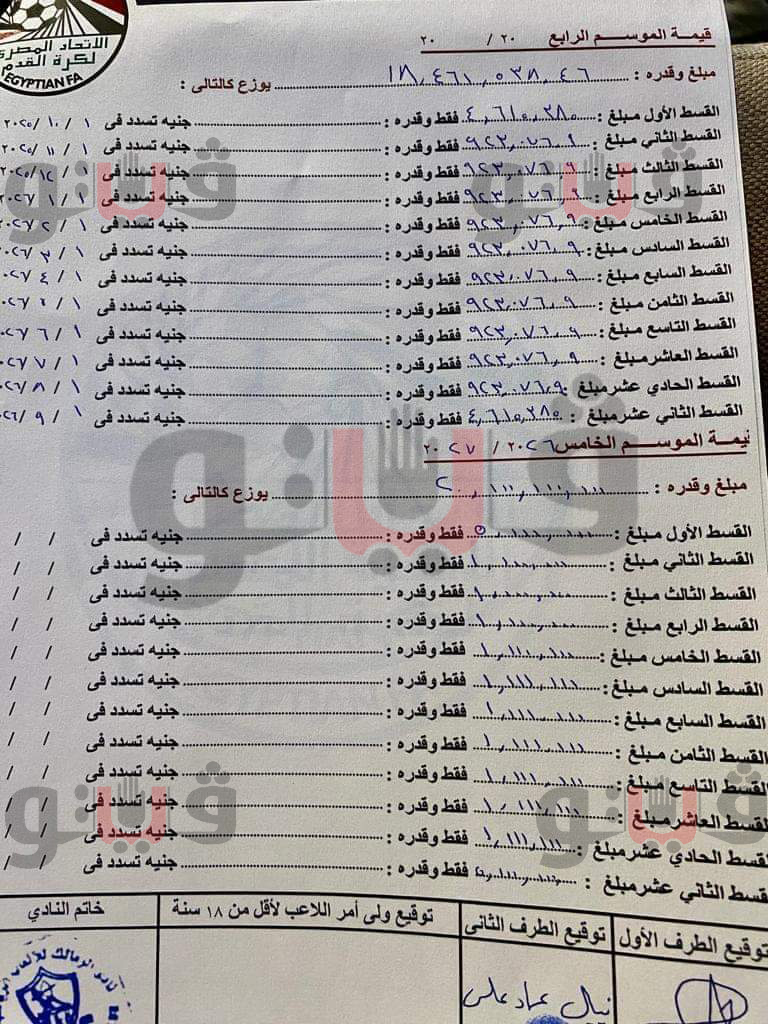 الاتحاد المصرى
لكرة القدم
EGYPTIAN FA
قيمة الموسم الرابع ٢٠ / ٢٠
مبلغ وقدره : ١٨,٤٦١,٥٣٨,٤٦ يوزع كالتالى :
القسط الأول مبلغ : ٤,٦١٥,٣٨٥ فقط وقدره : جنيه تسدد فى ١ / ١٠ / ٢٠٢٥
القسط الثاني مبلغ : ٩٢٣,٠٧٦,٩ فقط وقدره : جنيه تسدد فى ١ / ١١ / ٢٠٢٥
القسط الثالث مبلغ : ٩٢٣,٠٧٦,٩ فقط وقدره : جنيه تسدد فى ١ / ١٢ / ٢٠٢٥
القسط الرابع مبلغ : ٩٢٣,٠٧٦,٩ فقط وقدره : جنيه تسدد فى ١ / ١ / ٢٠٢٦
القسط الخامس مبلغ : ٩٢٣,٠٧٦,٩ فقط وقدره : جنيه تسدد فى ١ / ٢ / ٢٠٢٦
القسط السادس مبلغ : ٩٢٣,٠٧٦,٩ فقط وقدره : جنيه تسدد فى ١ / ٣ / ٢٠٢٦
القسط السابع مبلغ : ٩٢٣,٠٧٦,٩ فقط وقدره : جنيه تسدد فى ١ / ٤ / ٢٠٢٦
القسط الثامن مبلغ : ٩٢٣,٠٧٦,٩ فقط وقدره : جنيه تسدد فى ١ / ٥ / ٢٠٢٦
القسط التاسع مبلغ : ٩٢٣,٠٧٦,٩ فقط وقدره : جنيه تسدد فى ١ / ٦ / ٢٠٢٦
القسط العاشر مبلغ : ٩٢٣,٠٧٦,٩ فقط وقدره : جنيه تسدد فى ١ / ٧ / ٢٠٢٦
القسط الحادي عشر مبلغ : ٩٢٣,٠٧٦,٩ فقط وقدره : جنيه تسدد فى ١ / ٨ / ٢٠٢٦
القسط الثاني عشر مبلغ : ٤,٦١٥,٣٨٥ فقط وقدره : جنيه تسدد فى ١ / ٩ / ٢٠٢٦
قيمة الموسم الخامس ٢٠٢٦ / ٢٠٢٧
مبلغ وقدره : يوزع كالتالى :
القسط الأول مبلغ : فقط وقدره : جنيه تسدد فى / /
القسط الثاني مبلغ : فقط وقدره : جنيه تسدد فى / /
القسط الثالث مبلغ : فقط وقدره : جنيه تسدد فى / /
القسط الرابع مبلغ : فقط وقدره : جنيه تسدد فى / /
القسط الخامس مبلغ : فقط وقدره : جنيه تسدد فى / /
القسط السادس مبلغ : فقط وقدره : جنيه تسدد فى / /
القسط السابع مبلغ : فقط وقدره : جنيه تسدد فى / /
القسط الثامن مبلغ : فقط وقدره : جنيه تسدد فى / /
القسط التاسع مبلغ : فقط وقدره : جنيه تسدد فى / /
القسط العاشر مبلغ : فقط وقدره : جنيه تسدد فى / /
القسط الحادي عشر مبلغ : فقط وقدره : جنيه تسدد فى / /
القسط الثاني عشر مبلغ : فقط وقدره : جنيه تسدد فى / /
توقيع الطرف الأول توقيع الطرف الثانى توقيع ولى أمر اللاعب لأقل من ١٨ سنة خاتم النادي
نبيل عماد على
نادى الزمالك للألعاب
ڤيتو